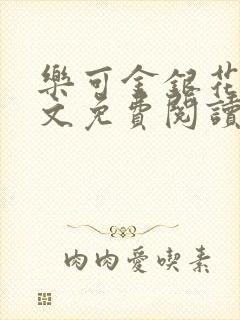 樂可金銀花
文免費閱讀
肉肉愛喫素